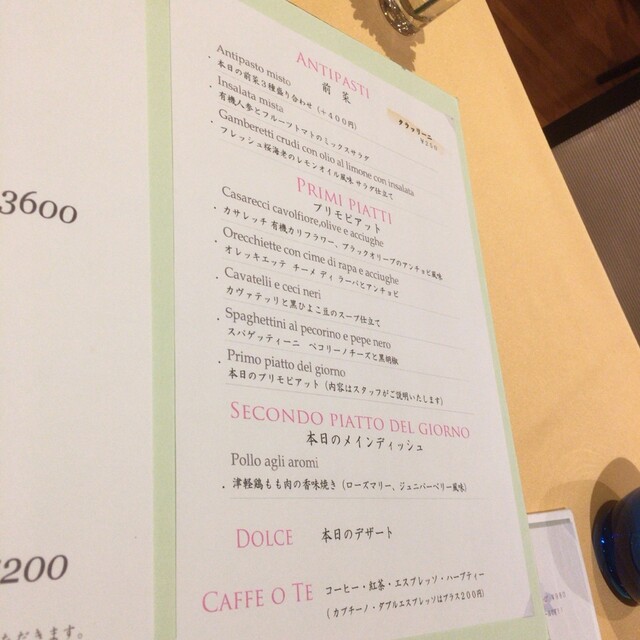 3600
200
ただきます。
ANTIPASTI
前菜
Antipasto misto
・本日の前菜3種盛り合わせ（+400円）
Insalata mista
・有機人参とフルーツトマトのミックスサラダ
Gamberetti crudi con olio al limone con insalata
・フレッシュ桜海老のレモンオイル風味 サラダ仕立て
タラッリーニ
¥250
PRIMI PIATTI
プリモピアット
Casarecci cavolfiore,olive e acciughe
・カサレッチ 有機カリフラワー、ブラックオリーブのアンチョビ風味
Orecchiette con cime di rapa e acciughe
・オレッキエッテ チーメ ディ ラーパとアンチョビ
Cavatelli e ceci neri
・カヴァテッリと黒ひよこ豆のスープ仕立て
Spaghettini al pecorino e pepe nero
・スパゲッティーニ ペコリーノチーズと黒胡椒
Primo piatto del giorno
・本日のプリモピアット（内容はスタッフがご説明いたします）
SECONDO PIATTO DEL GIORNO
本日のメインディッシュ
Pollo agli aromi
・津軽鶏もも肉の香味焼き（ローズマリー、ジュニパーベリー風味）
DOLCE 本日のデザート
CAFFE O TE コーヒー・紅茶・エスプレッソ・ハーブティー
（カプチーノ・ダブルエスプレッソはプラス200円）